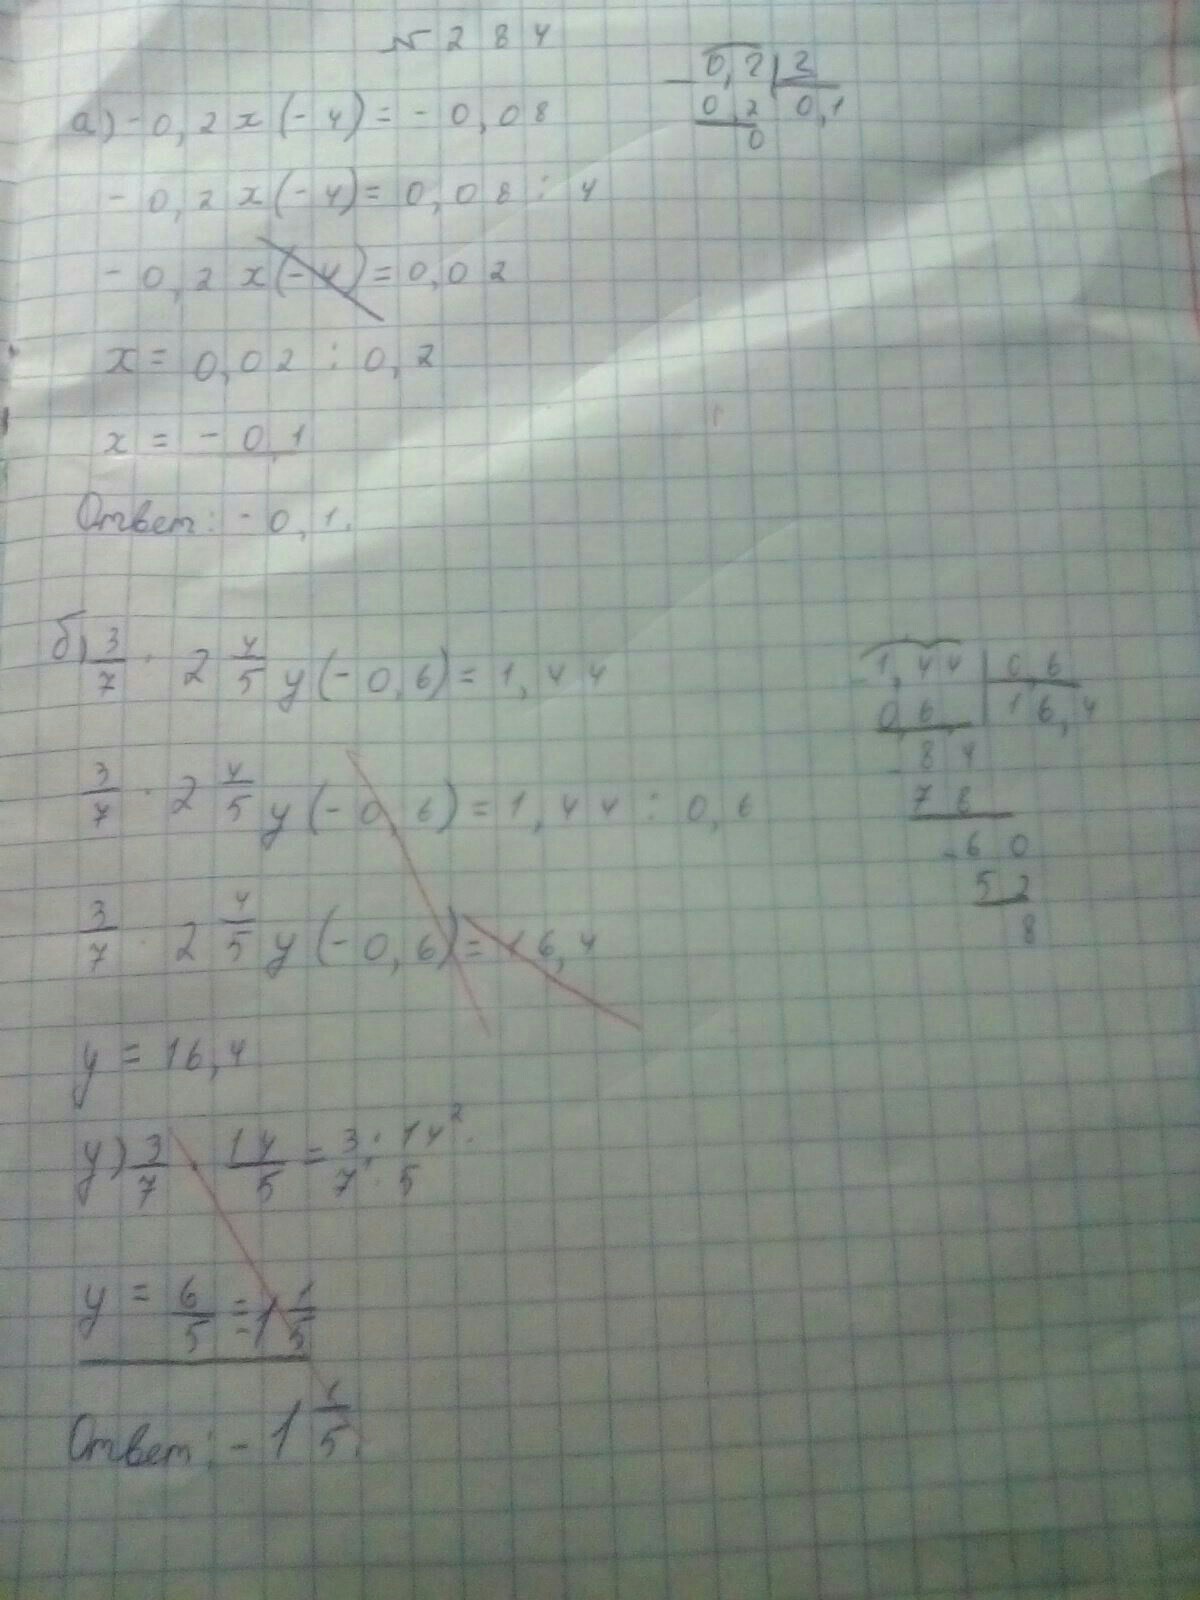 № 284
а) -0,2x(-4)= -0,08
-0,2x(-4)=0,08:4
-0,2x(-4)=0,02
x=0,02:0,2
x=-0,1
Ответ: -0,1.
0,2 | 2
0,2 0,1
0
б) 3/7 · 2 4/5 y(-0,6)=1,44
3/7 · 2 4/5 y(-0,6)=1,44:0,6
3/7 · 2 4/5 y(-0,6)=16,4
y=16,4
y) 3/7 · 14/5 = 3/7 · 14/5
y = 6/5 = 1 1/5
Ответ: -1 1/5.
1,44 | 0,6
0 6 16,4
84
78
60
52
8